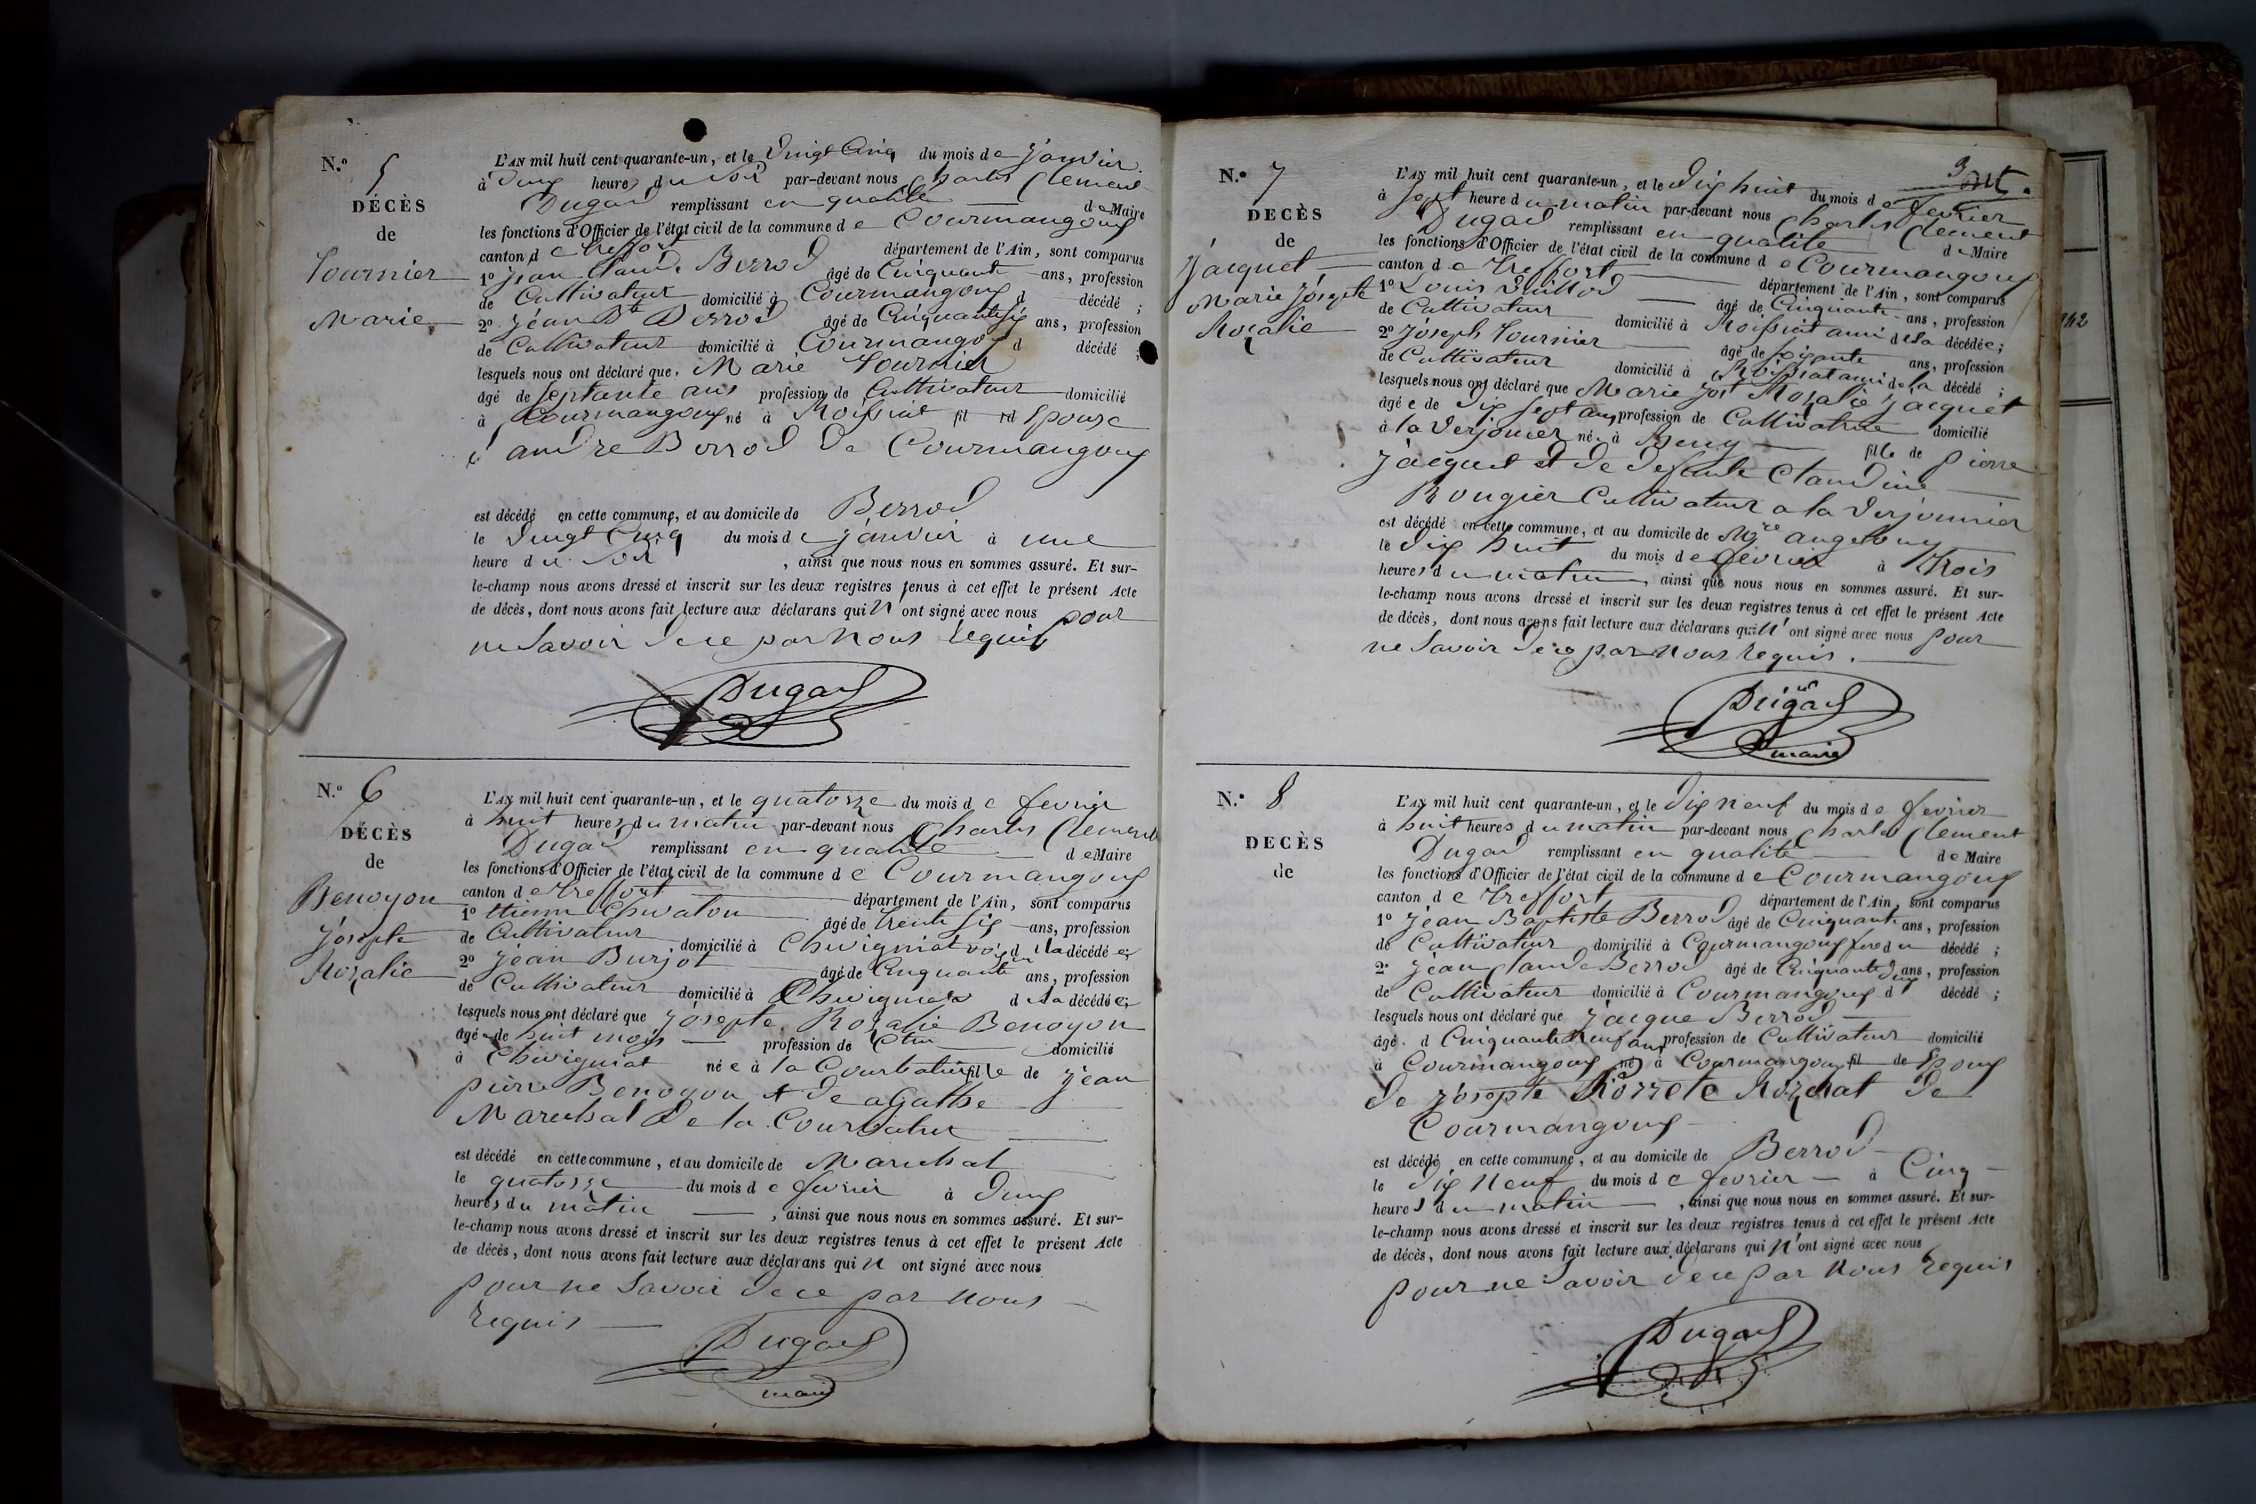 N.° 5
DÉCÈS
de
Fournier
Marie
L'AN mil huit cent quarante-un, et le Vingt Cinq du mois de janvier
à deux heures du soir par-devant nous Charles Clement
Dugad remplissant en qualité de Maire
les fonctions d'Officier de l'état civil de la commune de Courmangoux
canton de treffort département de l'Ain, sont comparus
1° jean Claude Berrod âgé de Cinquante ans, profession
de Cultivateur domicilié à Courmangoux d décédé ;
2° jean Bte Berrod âgé de Cinquante six ans, profession
de Cultivateur domicilié à Courmangoux d décédé ;
lesquels nous ont déclaré que, Marie Fournier
âgé de septante ans profession de Cultivateur domicilié
à Courmangoux né à Moissiat fil de Epouse
d'andre Berrod de Courmangoux
est décédé en cette commune, et au domicile de Berrod
le Vingt Cinq du mois de janvier à une
heure du soir , ainsi que nous nous en sommes assuré. Et sur-
le-champ nous avons dressé et inscrit sur les deux registres tenus à cet effet le présent Acte
de décès, dont nous avons fait lecture aux déclarans qui N ont signé avec nous pour
ne Savoir de ce par Nous Requis
Dugad
N.° 6
DÉCÈS
de
Benoyon
josepte
Rozalie
L'AN mil huit cent quarante-un, et le quatorze du mois de fevrier
à huit heures du matin par-devant nous Charles Clement
Dugad remplissant en qualité de Maire
les fonctions d'Officier de l'état civil de la commune de Courmangoux
canton de treffort département de l'Ain, sont comparus
1° Etienne Chevalon âgé de trente six ans, profession
de Cultivateur domicilié à Chevigniat voisin de la décédée
2° jean Burjot âgé de Cinquante ans, profession
de Cultivateur domicilié à Chevigniat de la décédée
lesquels nous ont déclaré que josepte Rozalie Benoyon
âgée de huit mois profession de domicilié
à Chevigniat née à la Courbatiere fille de jean
pierre Benoyon et de agathe
Marechal de la Courbatiere
est décédé en cette commune, et au domicile de Marechal
le quatorze du mois de fevrier à deux
heures du matin , ainsi que nous nous en sommes assuré. Et sur-
le-champ nous avons dressé et inscrit sur les deux registres tenus à cet effet le présent Acte
de décès, dont nous avons fait lecture aux déclarans qui N ont signé avec nous
pour ne Savoir de ce par nous
Requis
Dugad
maire
3
N.° 7
DECÈS
de
jacquet
Marie josepte
Rozalie
L'AN mil huit cent quarante-un, et le Dix huit du mois de fevrier
à sept heure du matin par-devant nous Charles Clement
Dugad remplissant en qualité de Maire
les fonctions d'Officier de l'état civil de la commune de Courmangoux
canton de treffort département de l'Ain, sont comparus
1° Louis Vuillod âgé de Cinquante ans, profession
de Cultivateur domicilié à Moissiat ami de la décédée ;
2° joseph Fournier âgé de soixante ans, profession
de Cultivateur domicilié à Moissiat ami de la décédé ;
lesquels nous ont déclaré que Marie jos Rozalie jacquet
âgée de dix sept ans profession de Cultivatrice domicilié
à la Verjonier né à Beny fille de pierre
jacquet et de defunte Claudine
Rougier Cultivateur a la Verjonnier
est décédé en cette commune, et au domicile de
le Dix huit du mois de fevrier à trois
heures du matin , ainsi que nous nous en sommes assuré. Et sur-
le-champ nous avons dressé et inscrit sur les deux registres tenus à cet effet le présent Acte
de décès, dont nous avons fait lecture aux déclarans qui N' ont signé avec nous pour
ne Savoir de ce par Nous Requis.
Dugad
maire
N.° 8
DECÈS
de
L'AN mil huit cent quarante-un, et le Dix neuf du mois de fevrier
à huit heures du matin par-devant nous Charles Clement
Dugad remplissant en qualité de Maire
les fonctions d'Officier de l'état civil de la commune de Courmangoux
canton de treffort département de l'Ain, sont comparus
1° jean Baptiste Berrod âgé de Cinquante ans, profession
de Cultivateur domicilié à Courmangoux frere du décédé ;
2° jean Claude Berrod âgé de Cinquante deux ans, profession
de Cultivateur domicilié à Courmangoux d décédé ;
lesquels nous ont déclaré que jacque Berrod
âgé d Cinquante Neuf ans profession de Cultivateur domicilié
à Courmangoux né à Courmangoux fil de Epoux
de josepte Perrete Rozat de
Courmangoux
est décédé en cette commune, et au domicile de Berrod
le Dix Neuf du mois de fevrier à Cinq
heures du matin , ainsi que nous nous en sommes assuré. Et sur-
le-champ nous avons dressé et inscrit sur les deux registres tenus à cet effet le présent Acte
de décès, dont nous avons fait lecture aux déclarans qui N'ont signé avec nous
pour ne Savoir de ce par Nous Requis
Dugad